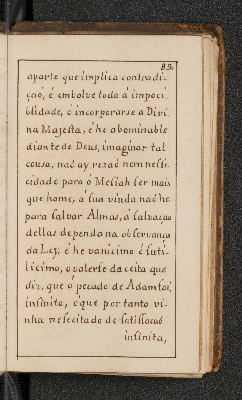 83.
aparte que implica contradi-
çaó, é embolve toda á impoci-
blidade, ó incorporarse a Divi-
na Majesta, é he abominable
diante de Deus, imaginar tal
cousa, naó ay rezaó nem nesse-
cidade para ó Mesiah ser mais
que home, á sua vinda naó he
para salvar Almas, á salvaçaó
dellas dependa na observança
da Ley, é he vanicimo é futi-
licimo, o valerse da ceita que
diz, que ó pecado de Adam foi
infinito, é que por tanto vi-
nha nesecitado de satissacaó
infinita,